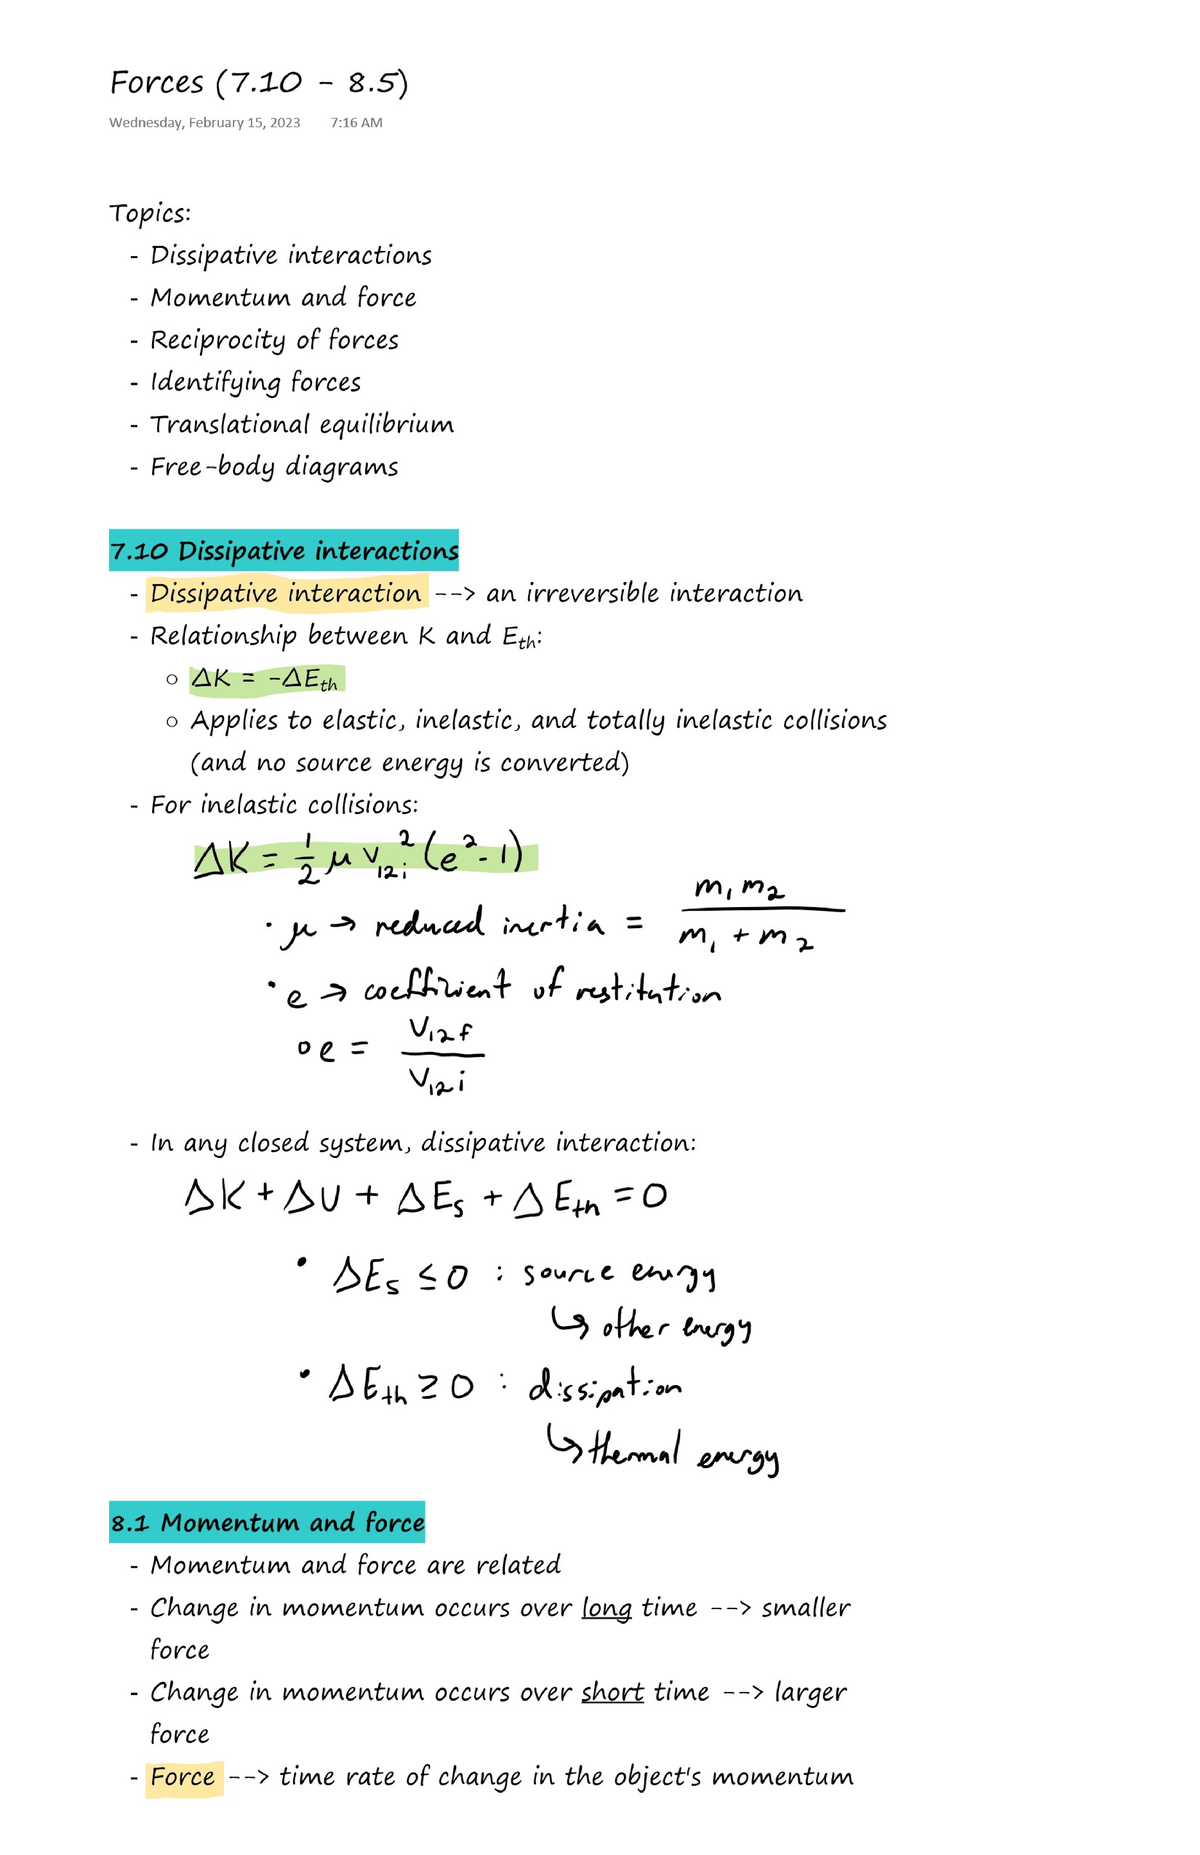 Forces (7.10 - 8.5)
Wednesday, February 15, 2023 7:16 AM
Topics:
- Dissipative interactions
- Momentum and force
- Reciprocity of forces
- Identifying forces
- Translational equilibrium
- Free-body diagrams
7.10 Dissipative interactions
- Dissipative interaction --> an irreversible interaction
- Relationship between K and Eth:
○ ΔK = -ΔEth
○ Applies to elastic, inelastic, and totally inelastic collisions
(and no source energy is converted)
- For inelastic collisions:
ΔK = 1/2 μ v₁₂ᵢ² (e² - 1)
· μ → reduced inertia = m₁m₂ / m₁ + m₂
· e → coefficient of restitution
○ e = v₁₂f / v₁₂i
- In any closed system, dissipative interaction:
ΔK + ΔU + ΔEs + ΔEth = 0
• ΔEs ≤ 0 : source energy
↳ other energy
• ΔEth ≥ 0 : dissipation
↳ thermal energy
8.1 Momentum and force
- Momentum and force are related
- Change in momentum occurs over long time --> smaller
force
- Change in momentum occurs over short time --> larger
force
- Force --> time rate of change in the object's momentum